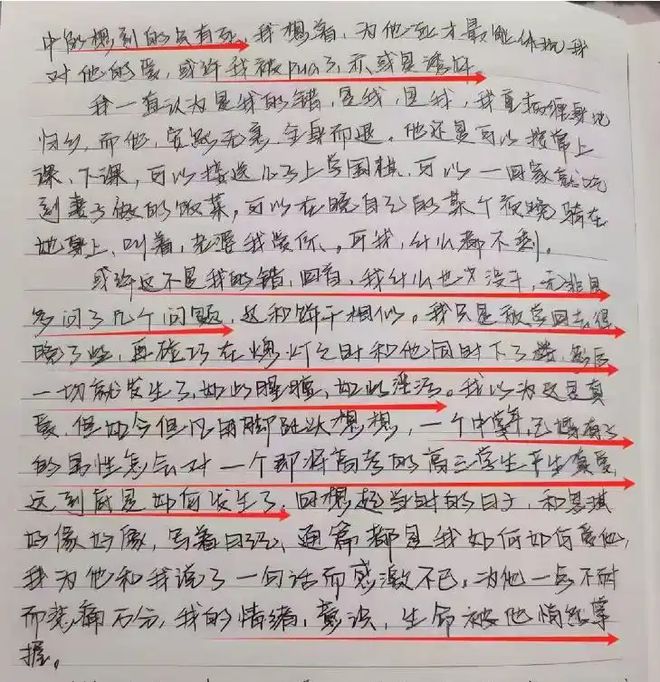 中的想到的只有死,我想着,为他死才最能体现我
对他的爱,或许我被pua了,亦或是
我一直认为是我的错,是我,是我,我
归乡,而他,安然无恙,全身而退。他还是可以按常上
课、下课,可以接送儿子上学围棋,可以一回家就吃
到妻子做的饭菜,可以在晚自己的某个夜晚骑在
她身上,叫着,老婆我爱你。可我,什么都不剩。
或许这不是我的错,回首,我什么也没干,无非是
多问了几个问题,这和饼干相似。我只是教室回去得
晚了些,再碰巧在熄灯之时和他同时下了楼,然后
一切就发生了,如此,如此淫污。我以为这是真
爱,但如今但凡用脚趾头想想,一个中年,已婚有子
的男性怎么对一个即将高考的高三学生产生真爱,
这到底是如何发生了,回想起当时的日子,和思琪
好像好像,写着日记,通篇都是我如何如何爱他,
我为他和我说了一句话而感激不已,为他一点不耐
而悲痛万分,我的情绪,意识,生命被他悄然掌
握。